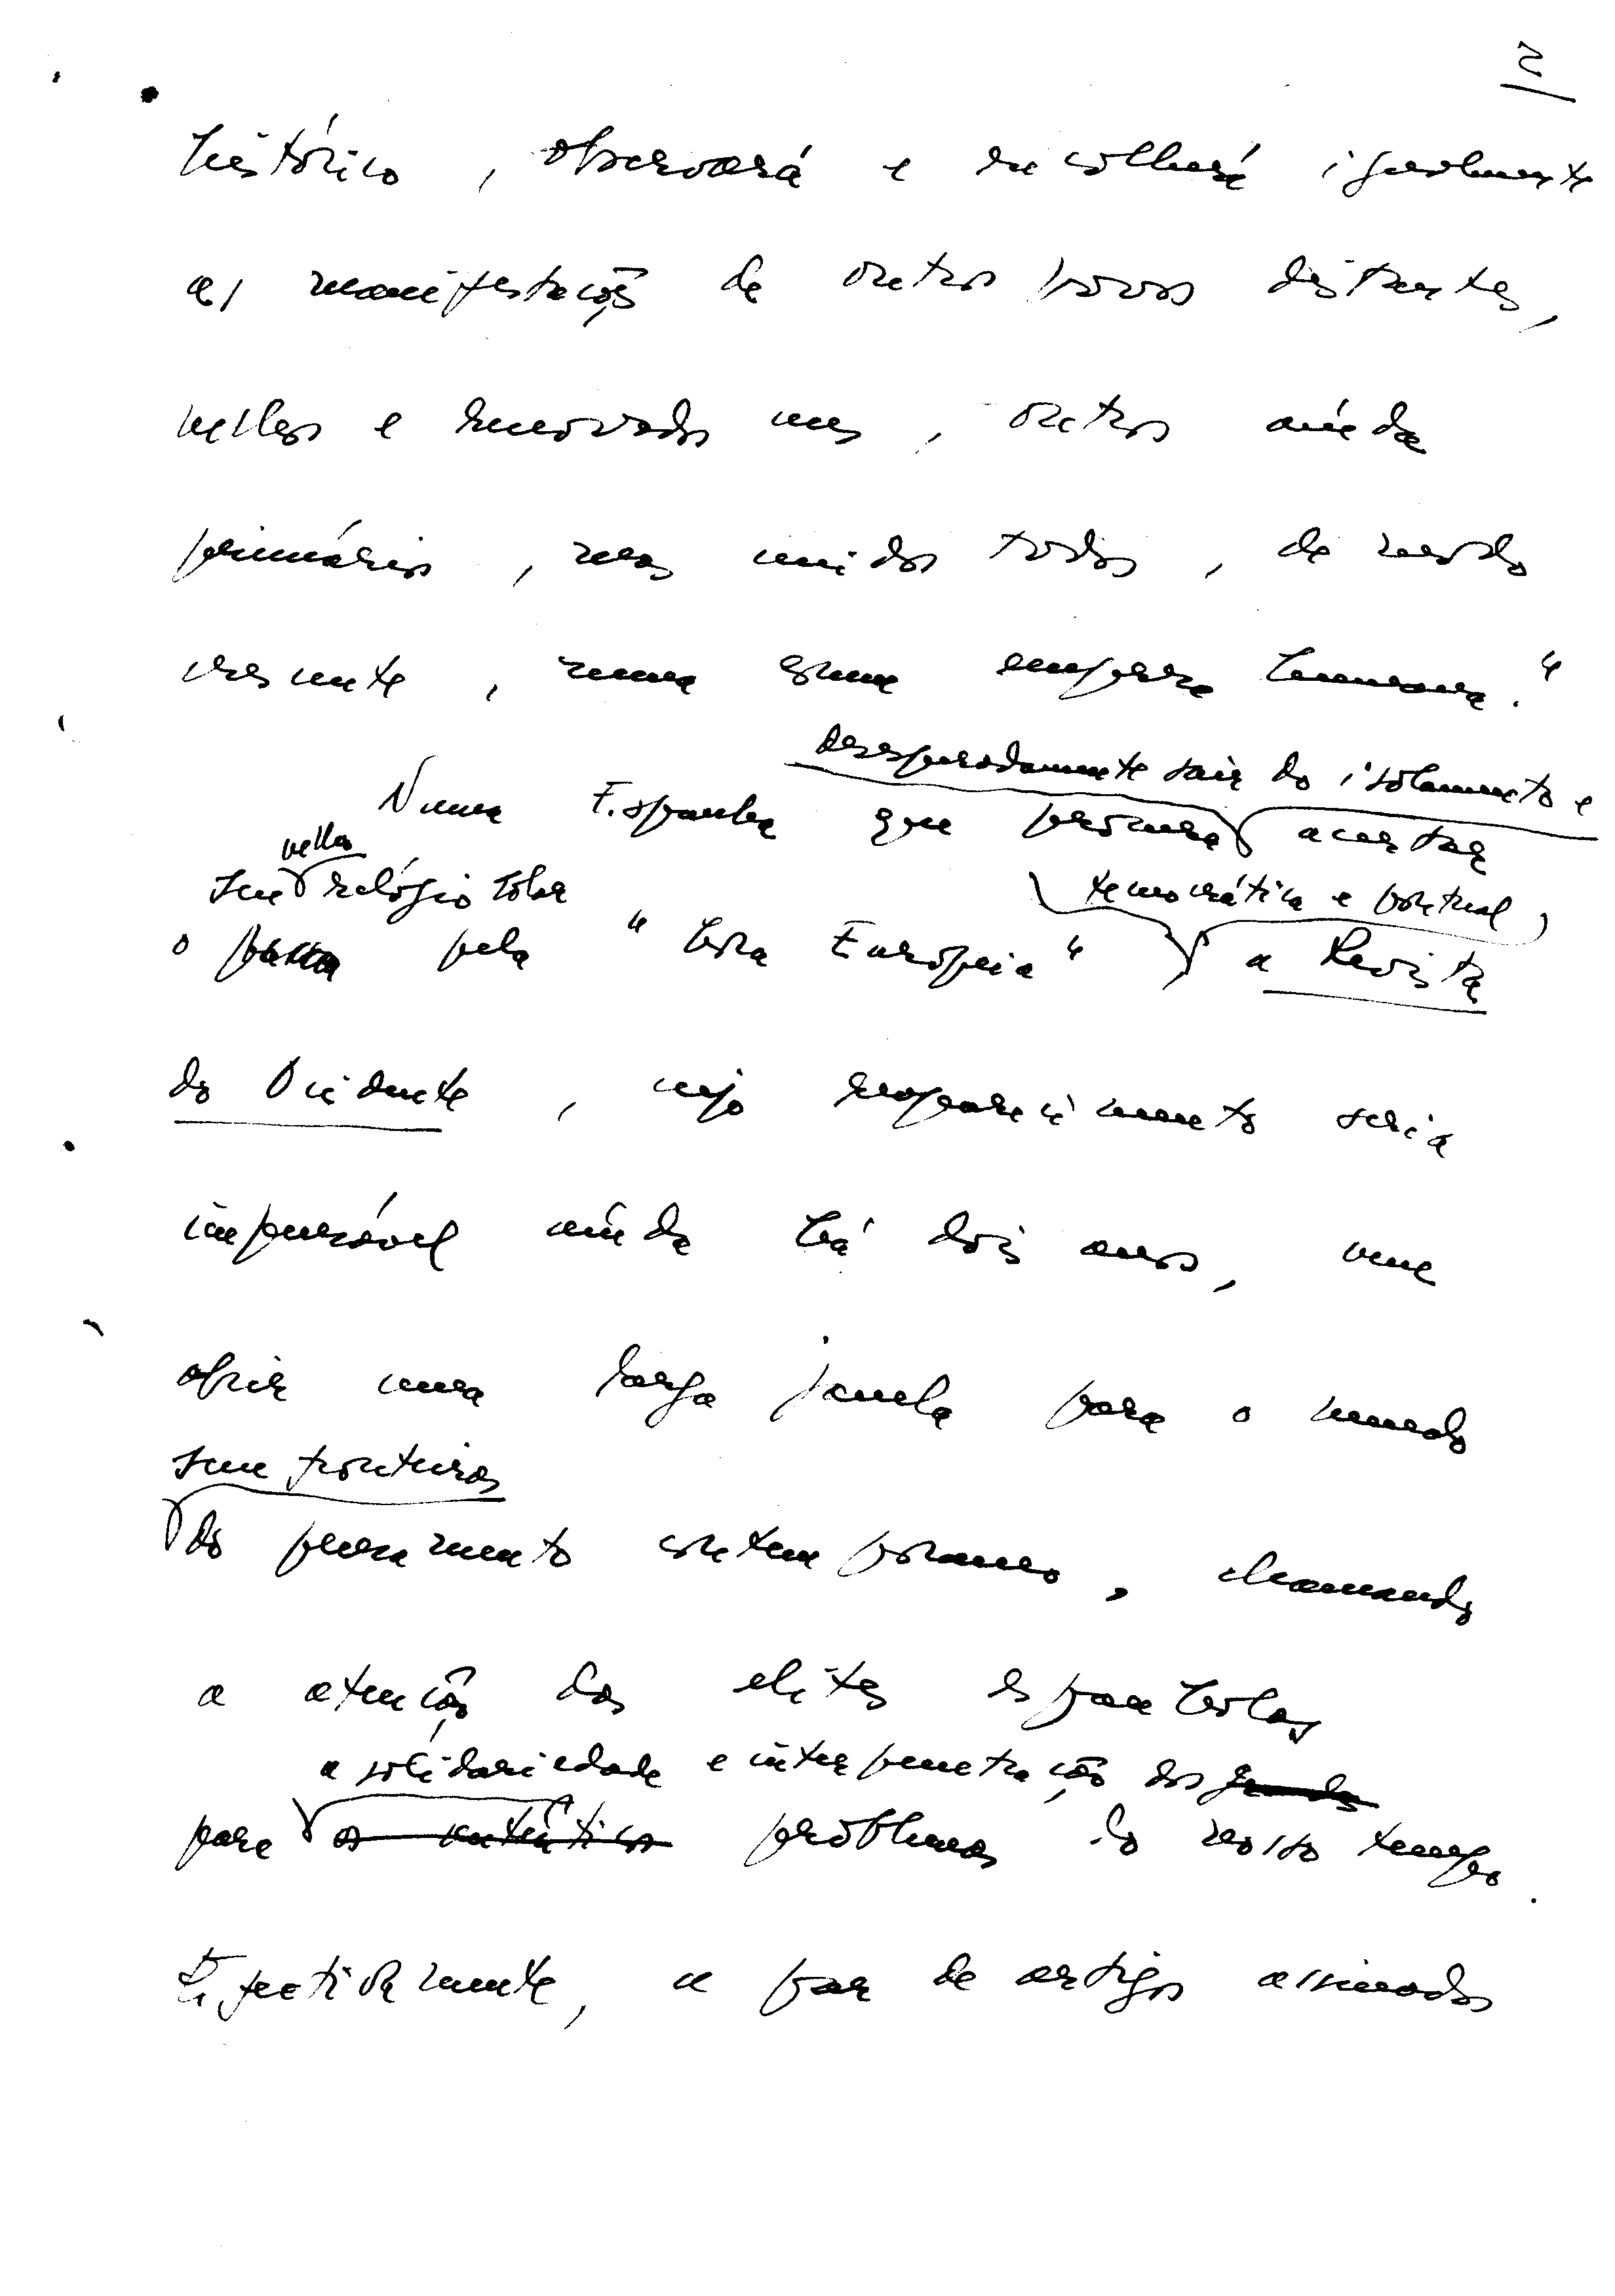 2
histórico, observará e recolherá igualmente
as manifestações de outros povos distantes,
velhos e renovados uns, outros ainda
primários, mas unidos todos, de modo
crescente, numa comum empresa humana."
desesperadamente sair do isolamento e
Numa Espanha que procura acertar
velho
seu relógio solar
tecnocrática e pontual,
o passo pela "hora Europeia" a Revista
do Ocidente, cujo reaparecimento seria
impensável ainda há dois anos, vem
abrir uma larga janela para o mundo
sem fronteiras
do pensamento contemporâneo, chamando
a atenção das elites espanholas
a solidariedade e interpenetração dos grandes
para os autênticos problemas do nosso tempo.
Efectivamente, a par de artigos assinados